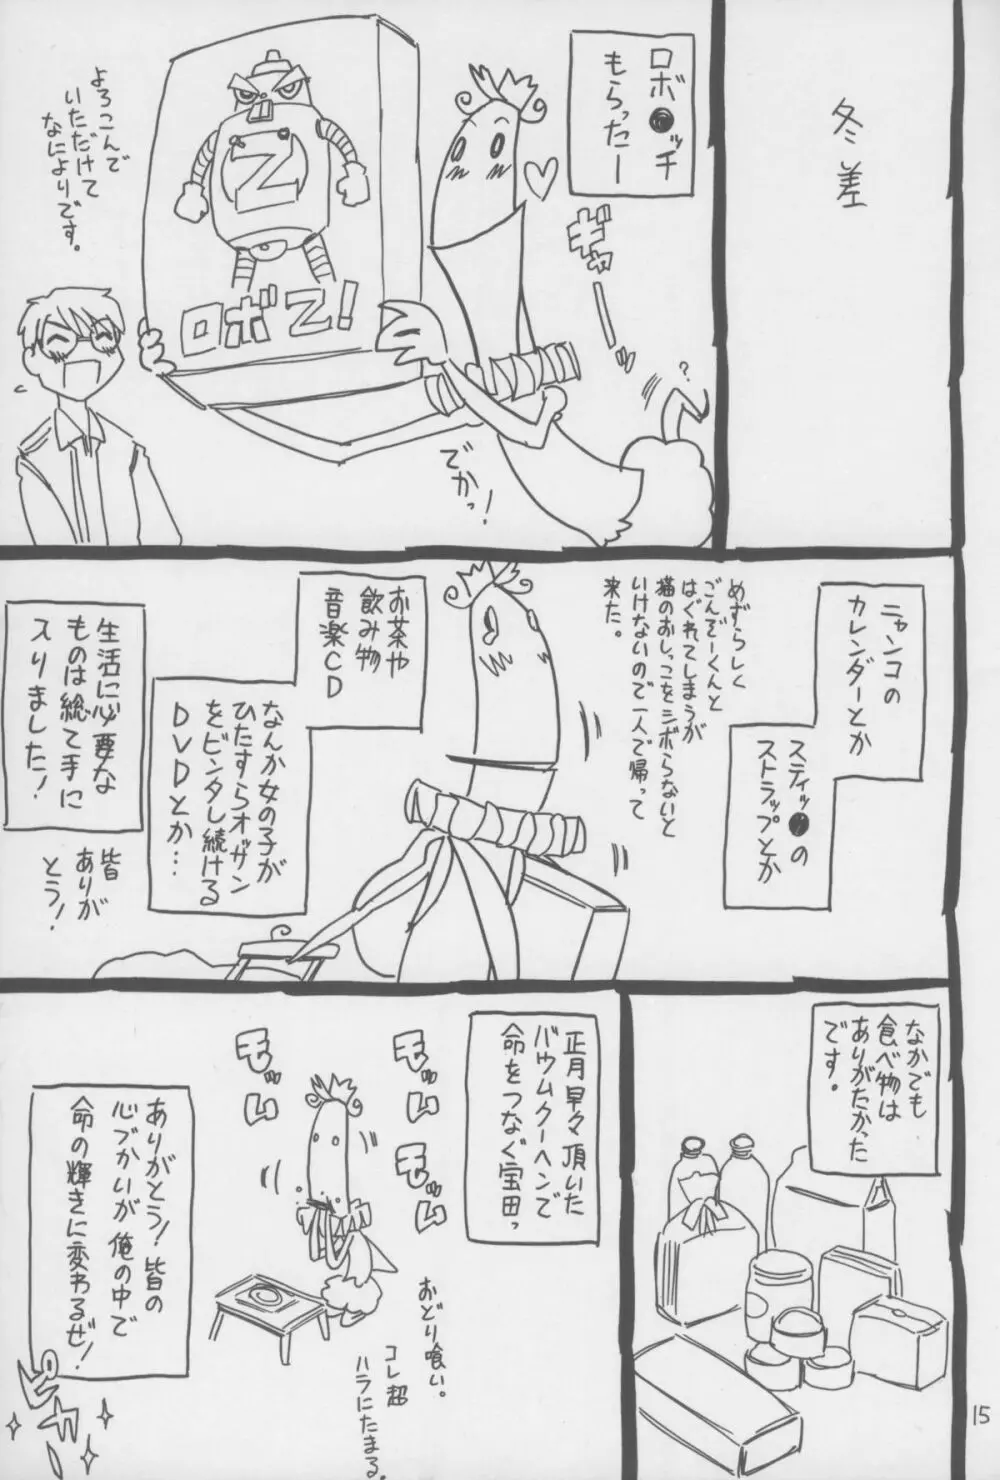 冬差
ロボ●ッチ
もらったー
ギャーッ
?
でかっ!
ロボZ!
Z
よろこんで
いただけて
なによりです。
ニャンコの
カレンダーとか
スティッ●の
ストラップとか
めずらしく
ごんぞーくんと
はぐれてしまうが
猫のおしっこをシボらないと
いけないので一人で帰って
来た。
お茶や
飲み物
音楽CD
なんか女の子が
ひたすらオッサン
をビンタし続ける
DVDとか…
生活に必要な
ものは総て手に
入りました!
皆
ありが
とう!
なかでも
食べ物は
ありがたかった
です。
正月早々頂いた
バウムクーヘンで
命をつなぐ宝田っ
モッム
モッム
モッム
おどり喰い。
コレ超
ハラにたまる。
ありがとう!皆の
心づかいが俺の中で
命の輝きに変わるぜ!
ピカー
15